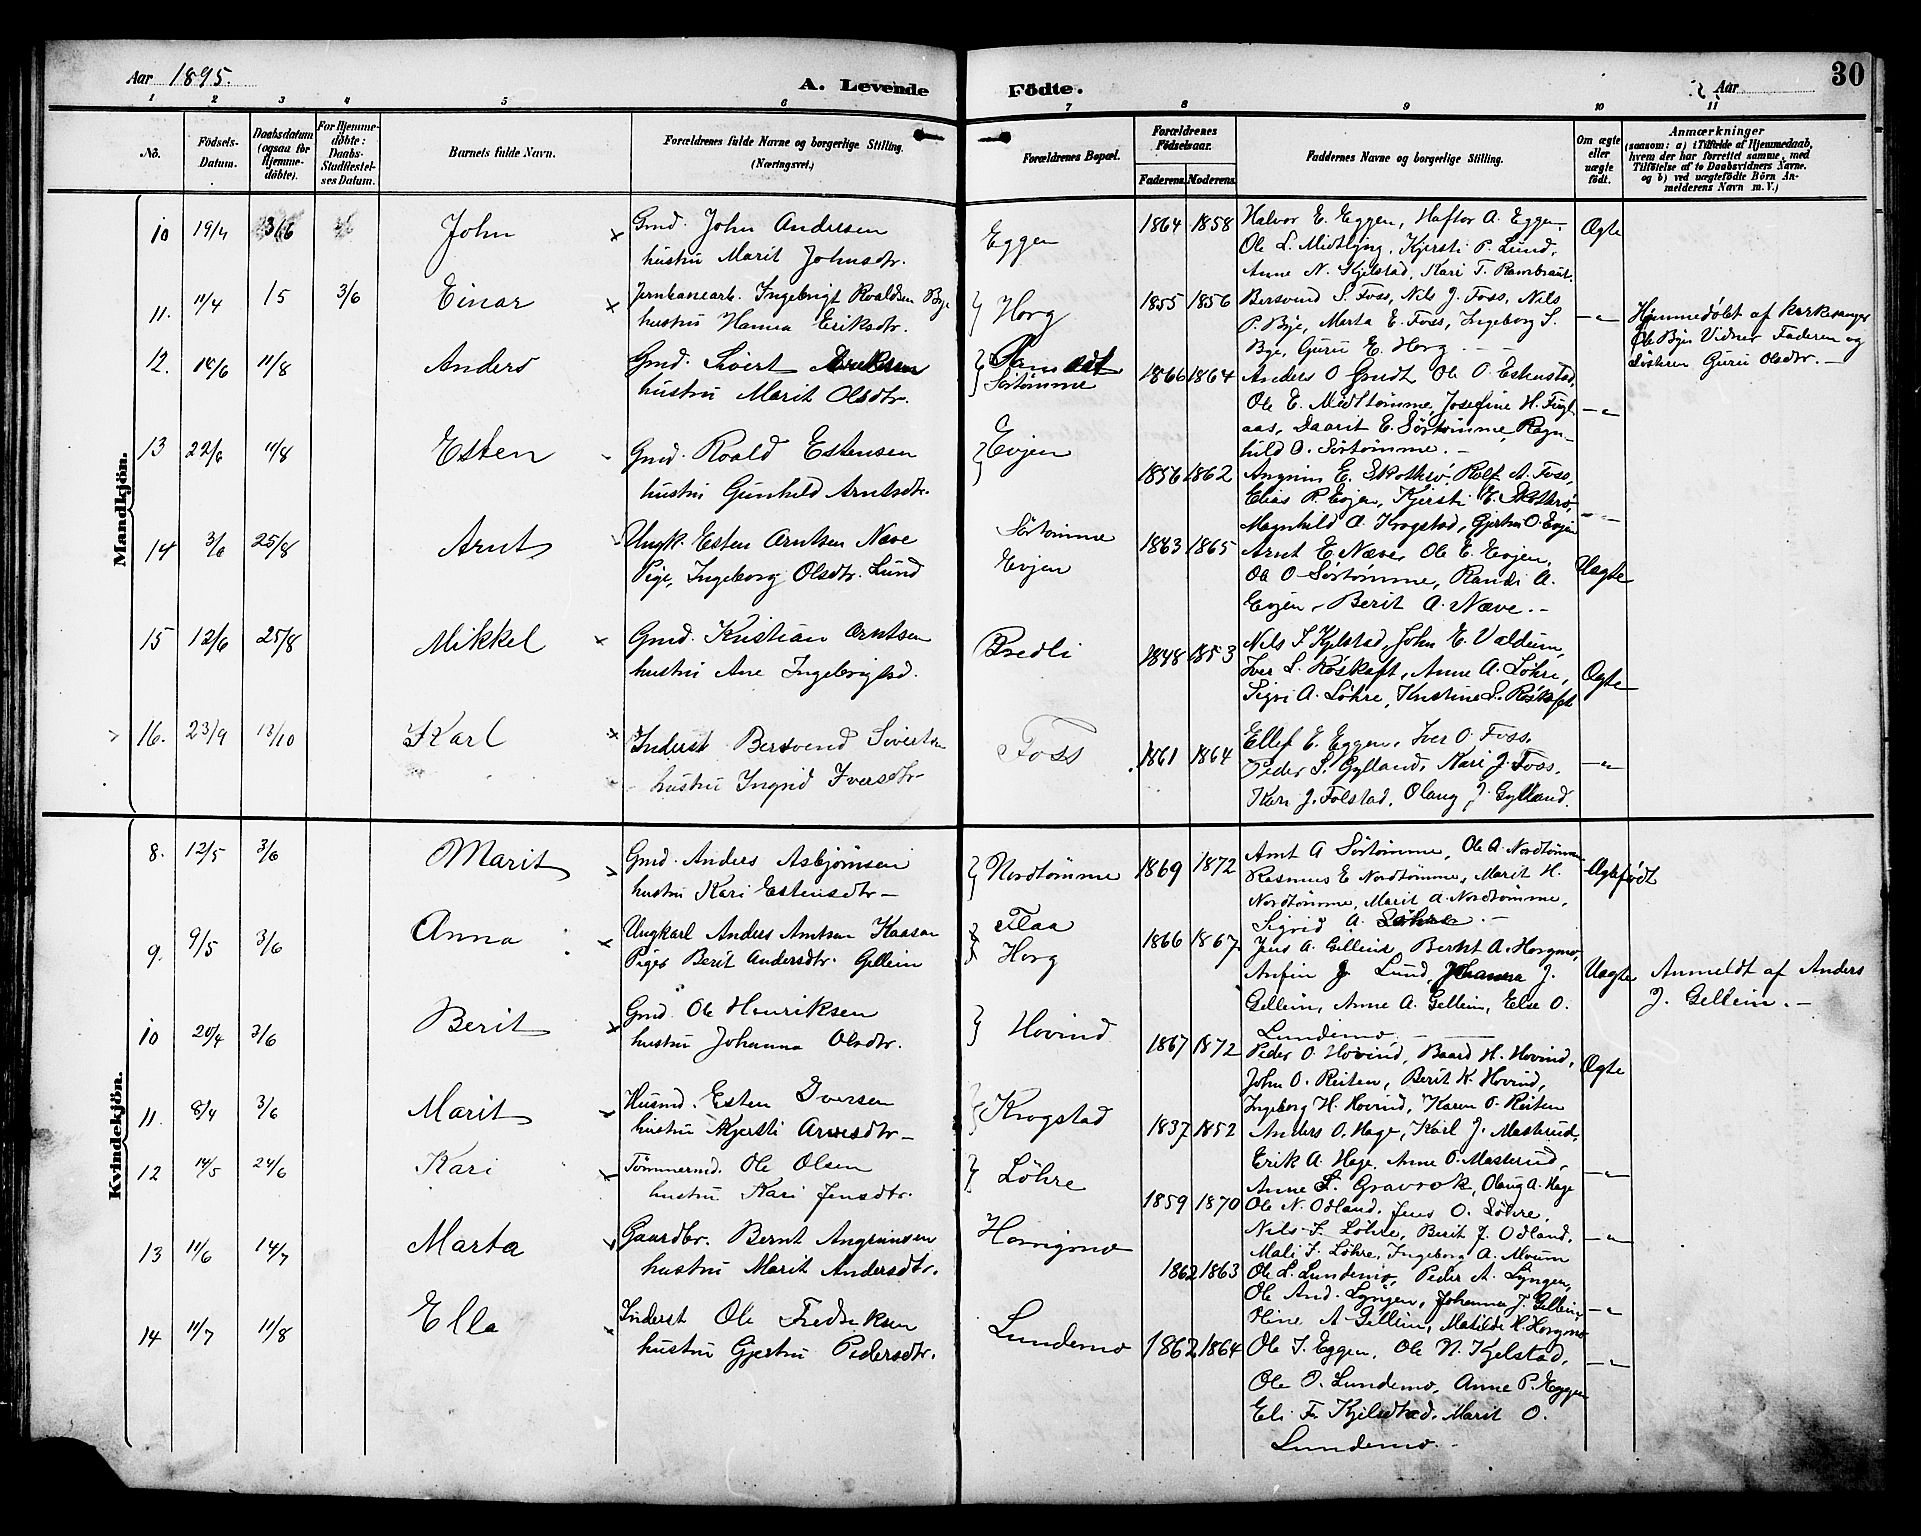 Aar 1895.
A. Levende
Födte.
Aar
30
1 2 3 4 5 6 7 8 9 10 11
No.
Födsels-Datum.
Daabsdatum (ogsaa for Hjemme-döbte).
For Hjemme-döbte: Daabs-Stadfæstel-ses Datum.
Barnets fulde Navn.
Forældrenes fulde Navne og borgerlige Stilling. (Næringsvei.)
Forældrenes Bopæl.
Forældrenes Födselsaar.
Faderens. Moderens.
Faddernes Navne og borgerlige Stilling.
Om ægte eller uægte födt.
Anmærkninger
(saasom: a) i Tilfælde af Hjemmedaab, hvem der har forrettet samme, med Tilföielse af to Daabsvidners Navne. og b) ved uægtefödte Börn Anmelderens Navn m. V.)
Mandkjön.
10 19/4 3/6 John
Gmd. John Andersen
hustru Marit Johnsdtr.
Eggen 1864 1858
Halvor E. Eggen, Haftor A. Eggen,
Ole L. Midtlyng, Kjersti P. Lund,
Anne N. Kjelstad, Kari T. Rambraut.
Ægte
11. 11/4 15 3/6 Einar
Jernbanearb. Ingebrigt Roaldsen Bye
hustru Hanna Eriksdtr.
Horg 1855 1856
Bersvend S. Foss, Nils J. Foss, Nils
P. Bye, Marta E. Foss, Ingeborg S.
Bye, Guru E. Horg
—"—
Hjemmedøbt af kirkesanger
Ole Bye Vidner Faderen og
Søsteren Guru Olsdtr. —
12. 16/6 11/8 Anders
Gmd. Sivert
hustru Marit Olsdtr.
Sørtømme 1866 1864
Anders O Grudt Ole O. Eshustad,
Ole E. Midttømme, Josefine H. Fugl-
aas, Daarit E. Sørtømme, Ragn-
hild O. Sørtømme. —
—"—
13 22/6 11/8 Esten
Gmd. Roald Estensen
hustru Gunhild Arntsdtr.
Evjen 1856 1862
Angrim E. Skotheø, Rolf A. Foss,
Elias P. Evjen, Kjersti E. Skotheø,
Magnhild A. Krogstad, Gjertru O. Evjen
—"—
14 3/6 25/8 Arnt
Ungk. Esten Arntsen Næve
Pige, Ingeborg Olsdtr. Lund
Sørtømme
Evjen
1863 1865
Arnt E. Næve, Ole E. Evjen,
Ole O Sørtømme, Randi A.
Evjen, Berit A. Næve. —
Uægte
15 12/6 25/8 Mikkel
Gmd. Kristian Arntsen
hustru Ane Ingebrigtsd.
Bredli 1848 1853
Nils S Kjelstad, John E. Valdum,
Iver L. Røskaft, Anne A. Løhre,
Sigri A. Løhre, Kristine S. Røskaft
Ægte
16. 23/9 13/10 Karl
Inderst Bersvend Sivertsen
hustru Ingrid Iversdtr.
Foss 1861 1864
Ellef E. Eggen, Iver O. Foss,
Peder S. Gylland, Kari J. Foss,
Kari J. Folstad, Olaug J. Gylland.
—"—
Kvindekjön.
8. 12/5 3/6 Marit
Gmd. Anders Asbjørnsen
hustru Kari Estensdtr —
Nordtømme 1869 1872
Arnt A Sørtømme, Ole A. Nordtømme
Rasmus E Nordtømme, Marit H.
Nordtømme, Marit A. Nordtømme,
Sigrid A. Løhre. —
Ægtefødt
9. 9/5 3/6 Anna
Ungkarl Anders Arntsen Kaasen
Piges Berit Andersdtr. Gellein
Flaa
Horg
1866 1867
Jens A. Gellein, Bernt A. Horgmo,
Anfin J. Lund, Johanna J.
Gellein, Anne A. Gellein, Else O.
Lundemo. —
Uægte
Anmeldt af Anders
J. Gellein. —
10 20/4 3/6 Berit
Gmd. Ole Henriksen
hustru Johanna Olsdtr.
Hovind 1867 1872
Peder O. Hovind, Baard H. Hovind,
John O. Reiten, Berit K. Hovind,
Ingeborg H. Hovind, Karen O. Reiten
Ægte
11. 8/4 3/6 Marit
Husmd. Esten Iversen
hustru Kjersti Arnesdtr —
Krogstad 1837 1852
Anders O. Hage, Karl J. Masterud,
Erik A. Hage, Anne O. Masterud,
Anne L. Gravrok, Olaug A. Hage
—"—
12 14/5 24/6 Kari
Tømmermd. Ole Olsen
hustru Kari Jensdtr.
Løhre 1859 1870
Ole N. Odland, Jens O. Løhre,
Nils F. Løhre, Berit J. Odland,
Mali F. Løhre, Ingeborg A. Moum
—"—
13 11/6 14/7 Marta
Gaardbr. Bernt Angrimsen
hustru Marit Andersdtr.
Horrigmo 1862 1863
Ole L. Lundemo, Peder A. Lyngen,
Ole And. Lyngen, Johanna J. Gellein,
Oline A Gellein, Matilde H. Horgmo
—"—
14 11/7 11/8 Ella
Inderst Ole Fredriksen
hustru Gjertru Pedersdtr.
Lundemo 1862 1864
Ole I. Eggen, Ole N. Kjelstad,
Ole O. Lundemo, Anne P. Eggen
Eli Fr. Kjelstad, Marit O.
Lundemo. —
—"—